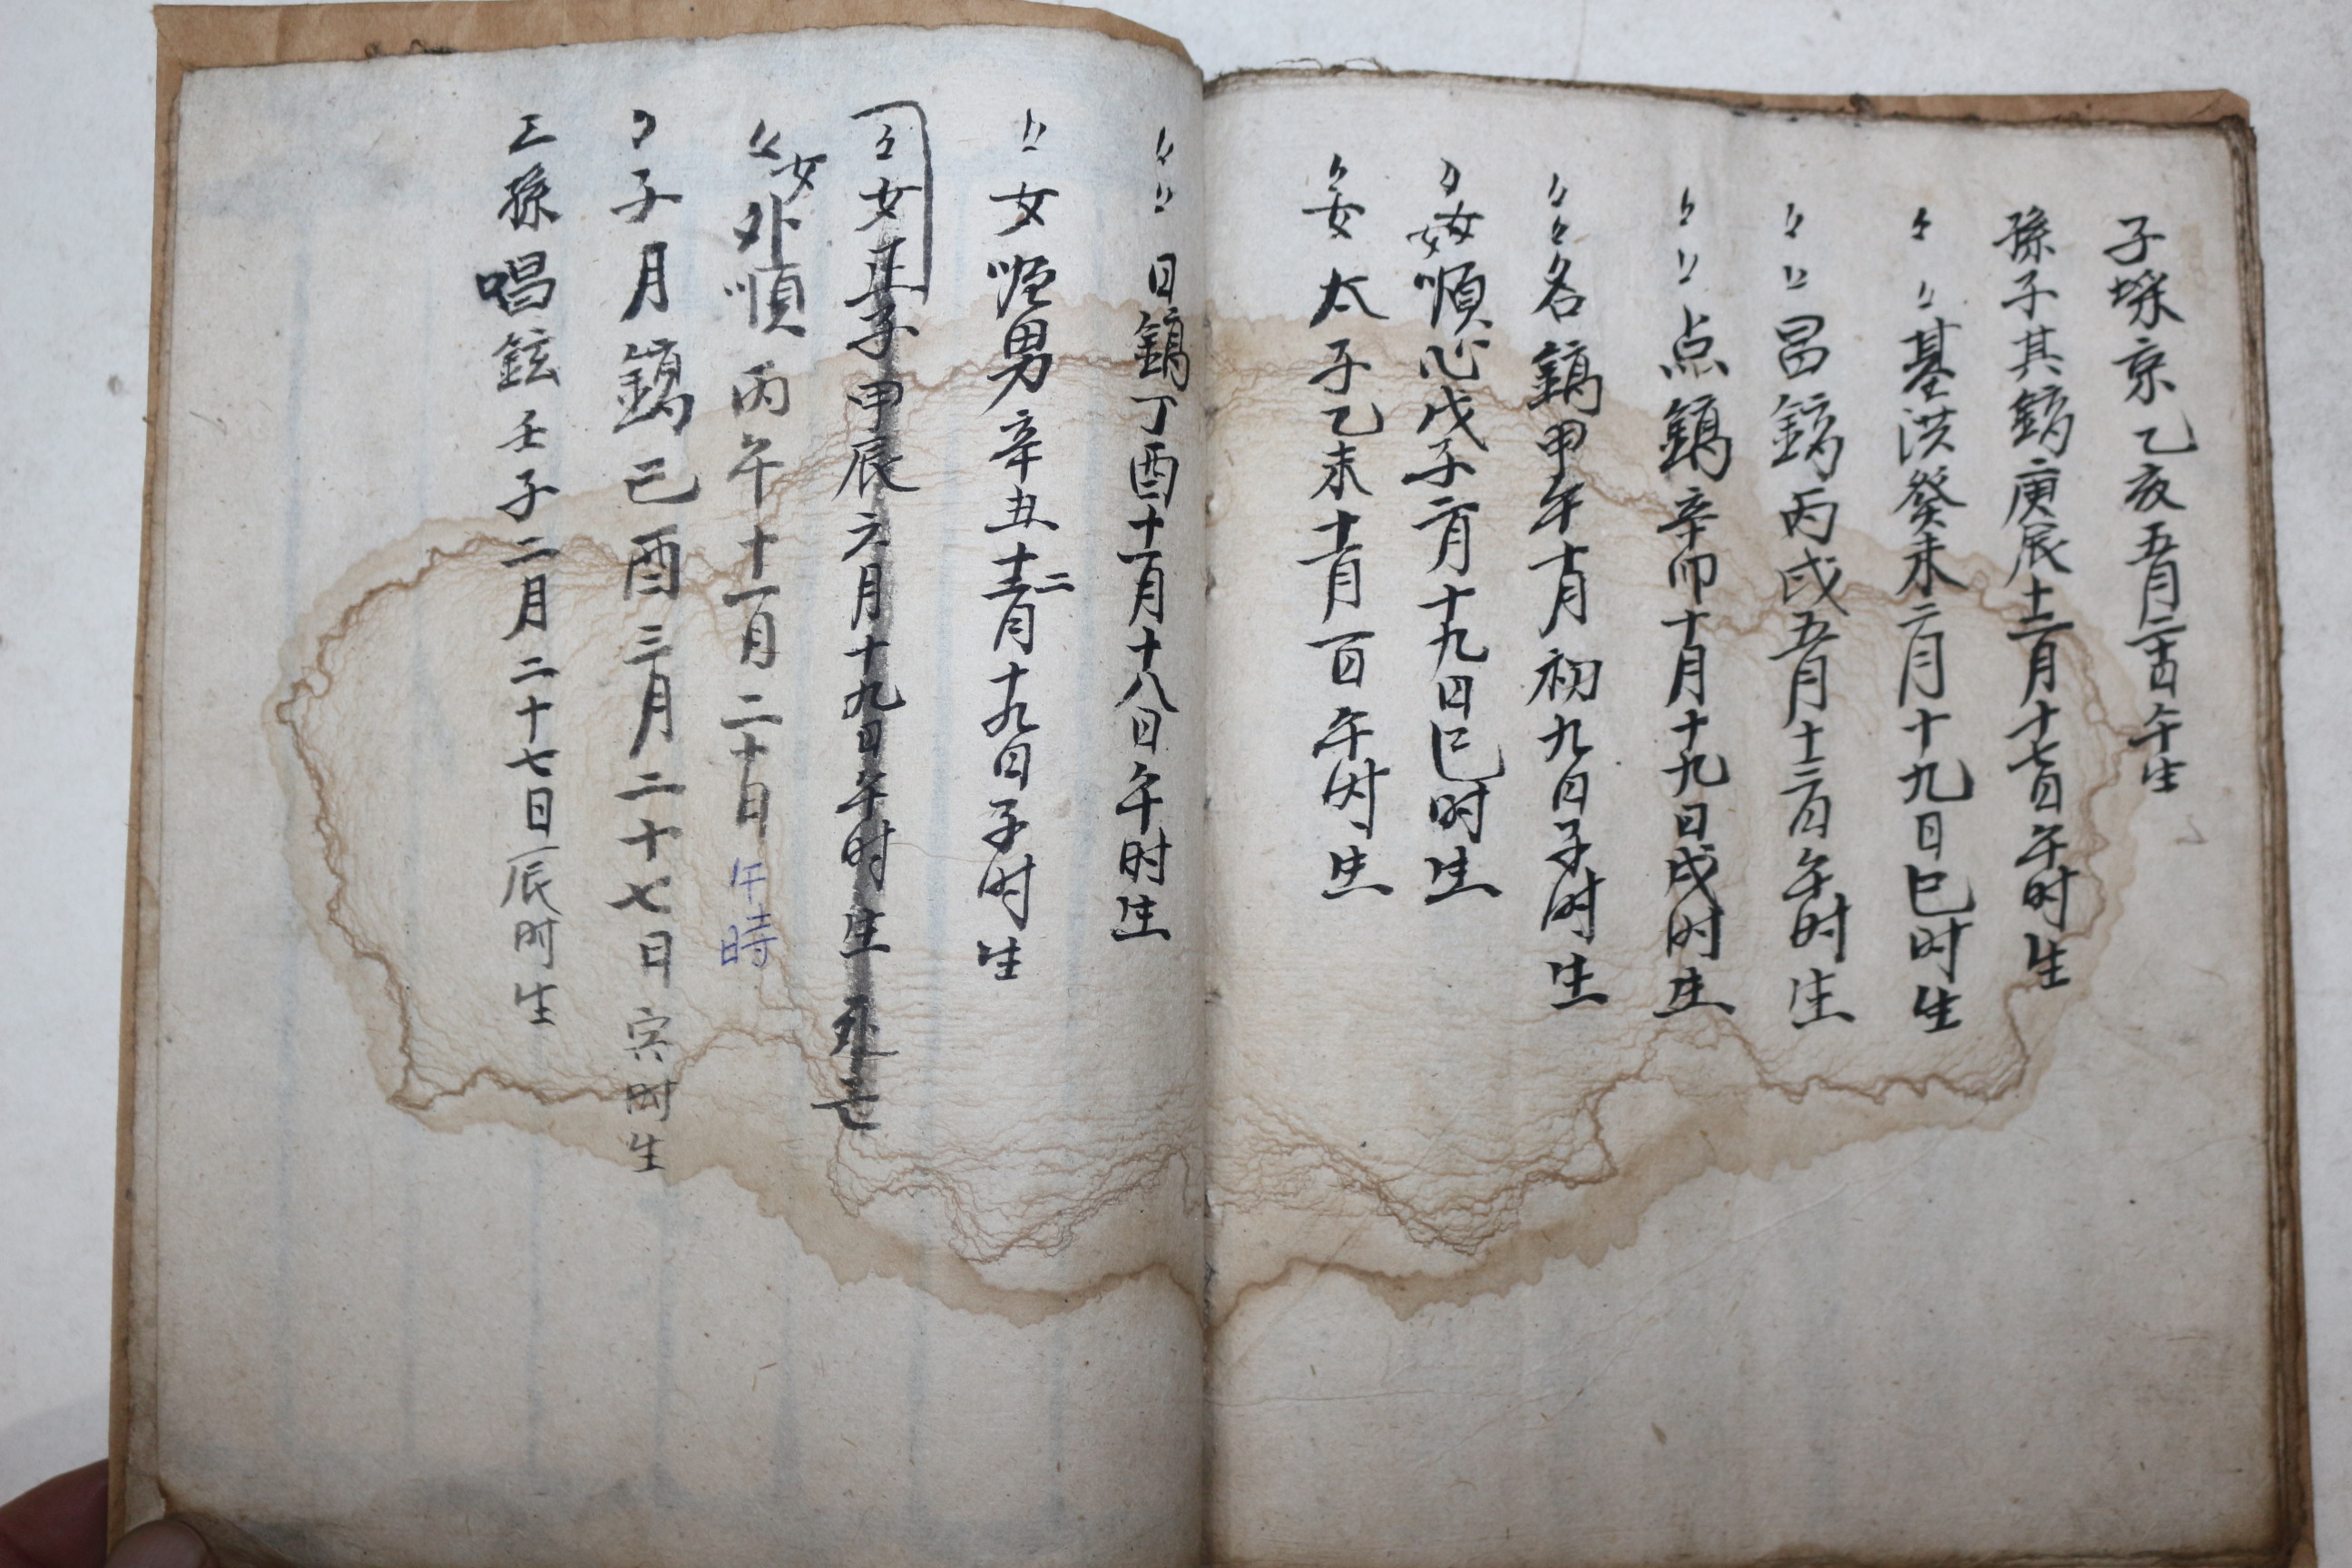 子埰京乙亥五月二十日午生
孫子其鎬庚辰十二月十七日午时生
々々基洪癸未二月十九日巳时生
々々昌鎬丙戌五月十二日午时生
々々点鎬辛卯十月十九日戌时生
々々各鎬甲午十月初九日子时生
々女順心戊子二月十九日巳时生
々女太子乙未十一月一日午时生
々々日鎬丁酉十一月十八日午时生
々女順男辛丑十二月十九日子时生
々女正子甲辰六月十九日午时生死亡
々女外順丙午十一月二十日午時
々子月鎬己酉三月二十七日寅时生
三孫唱鉉壬子二月二十七日辰时生